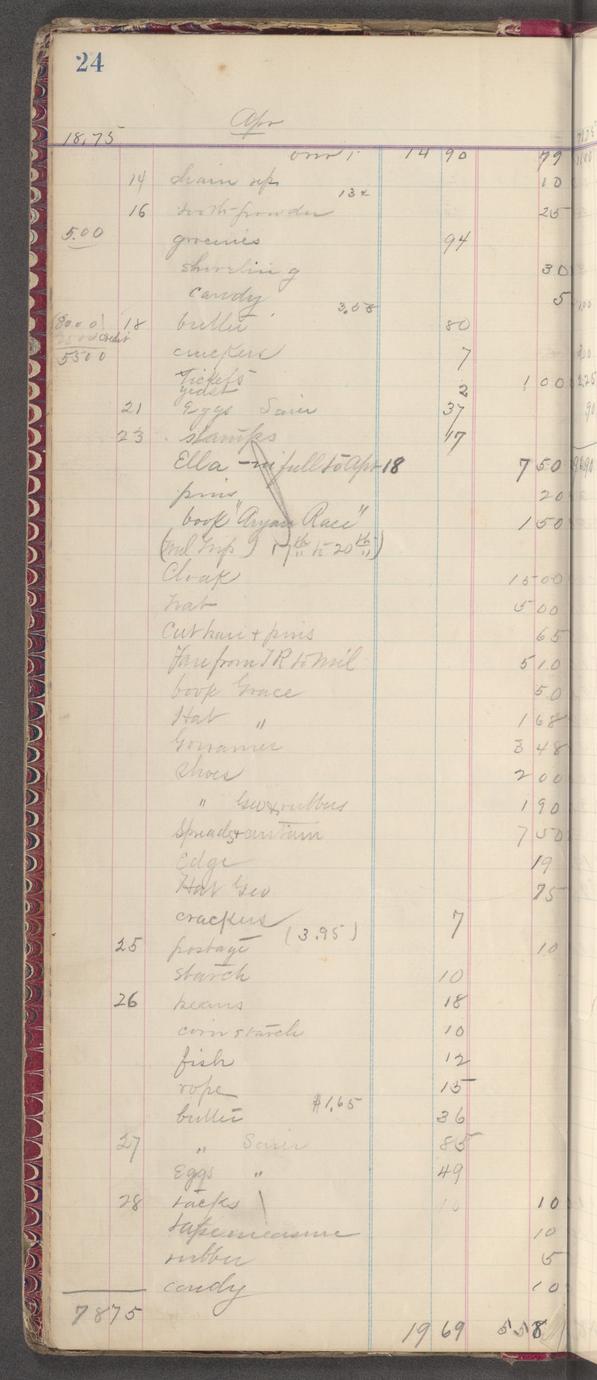 24
Apr
18.75
over 1 14 90 79
14 chain rep 10
13 ×
16 tooth powder 25
5.00 groceries 94
shoveling 30
candy 5
3.58
(80 00) 18 butter 80
25 00 credit
55 00 crackers 7
Tickets 1 00
yeast 2
21 Eggs 37
23 stamps 47
Ella - in full to Apr 18 7 50
pins 20
book "Aryan Race" 1 50
(Mil trip) 17th to 20th)
Cloak 15 00
hat 5 00
Cut hair + pins 65
Fare from TR to Mil 5 10
book Grace 50
Hat " 1 68
Gossamer 3 48
shoes 2 00
" Geo + rubbers 1 90
Spreads + 7 50
Edge 19
Hat Geo 75
crackers 7
(3.95)
25 postage 10
starch 10
26 beans 18
corn starch 10
fish 12
rope 15
$1.65
butter 36
27 " 85
Eggs " 49
28 tacks \ 10 10
tape measure 10
rubber 5
candy 10
78 75
19 69 55 8